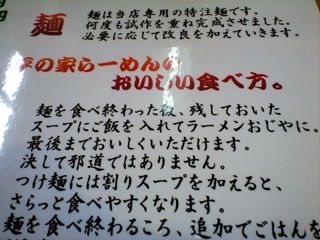 麺
麺は当店専用の特注麺です。
何度も試作を重ね完成させました。
必要に応じて改良を加えていきます。
の家らーめんの
おいしい食べ方。
麺を食べ終わった後、残しておいた
スープにご飯を入れてラーメンおじやに。
最後までおいしくいただけます。
決して邪道ではありません。
つけ麺には割りスープを加えると、
さらっと食べやすくなります。
麺を食べ終わるころ、追加でごはんを